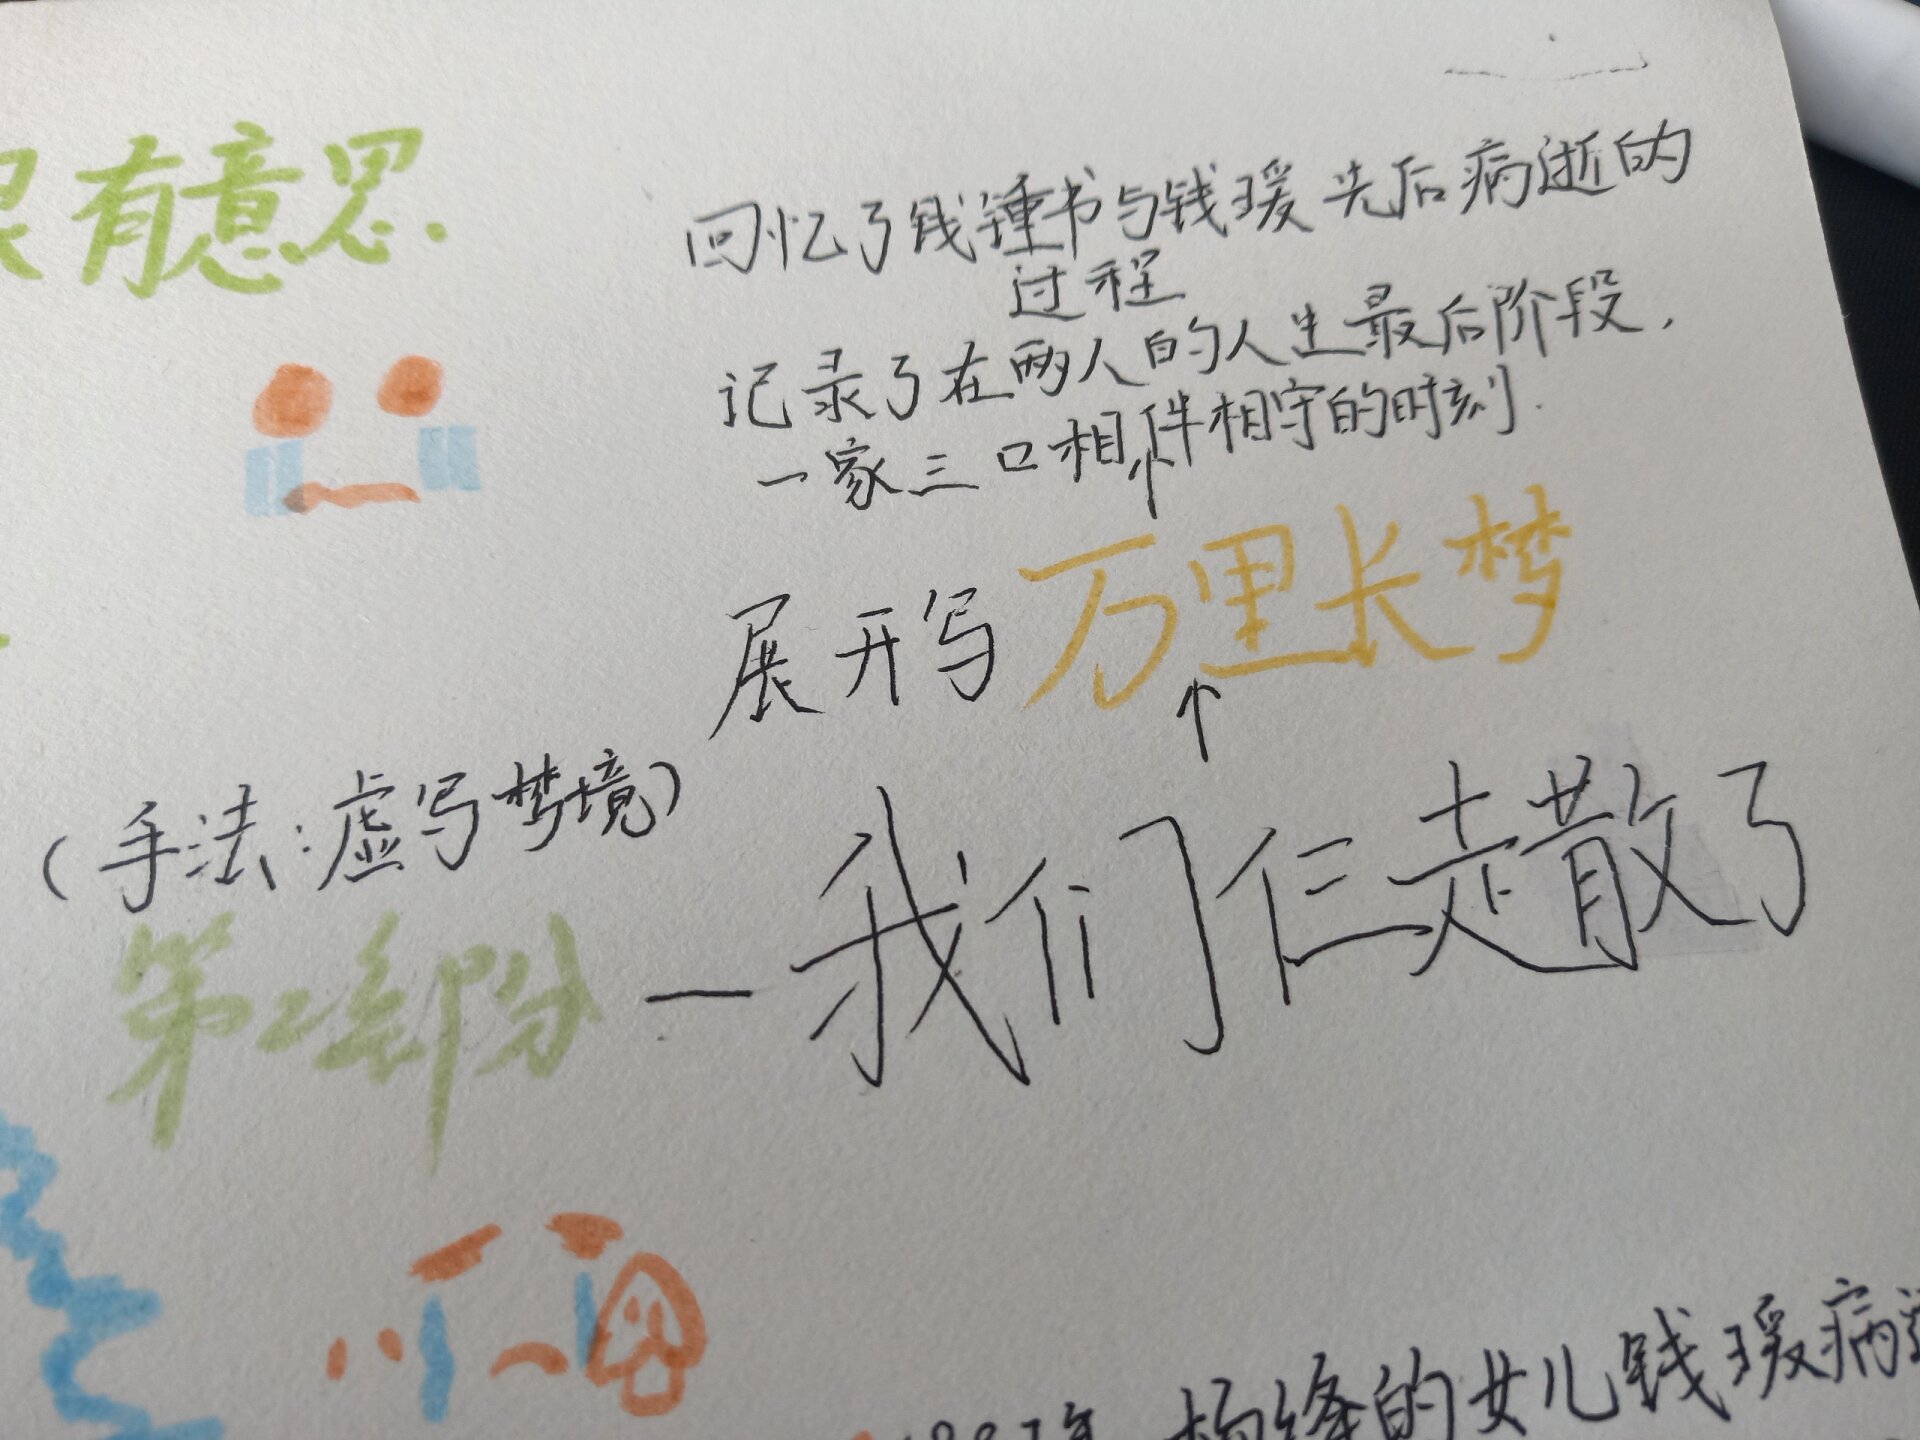 有意思.
回忆了钱锺书与钱瑗先后病逝的
过程
记录了在两人的人生最后阶段,
一家三口相伴相守的时刻.
展开写 万里长梦
(手法:虚写梦境)
第二部份 — 我们仨走散了
杨绛的女儿钱瑗病